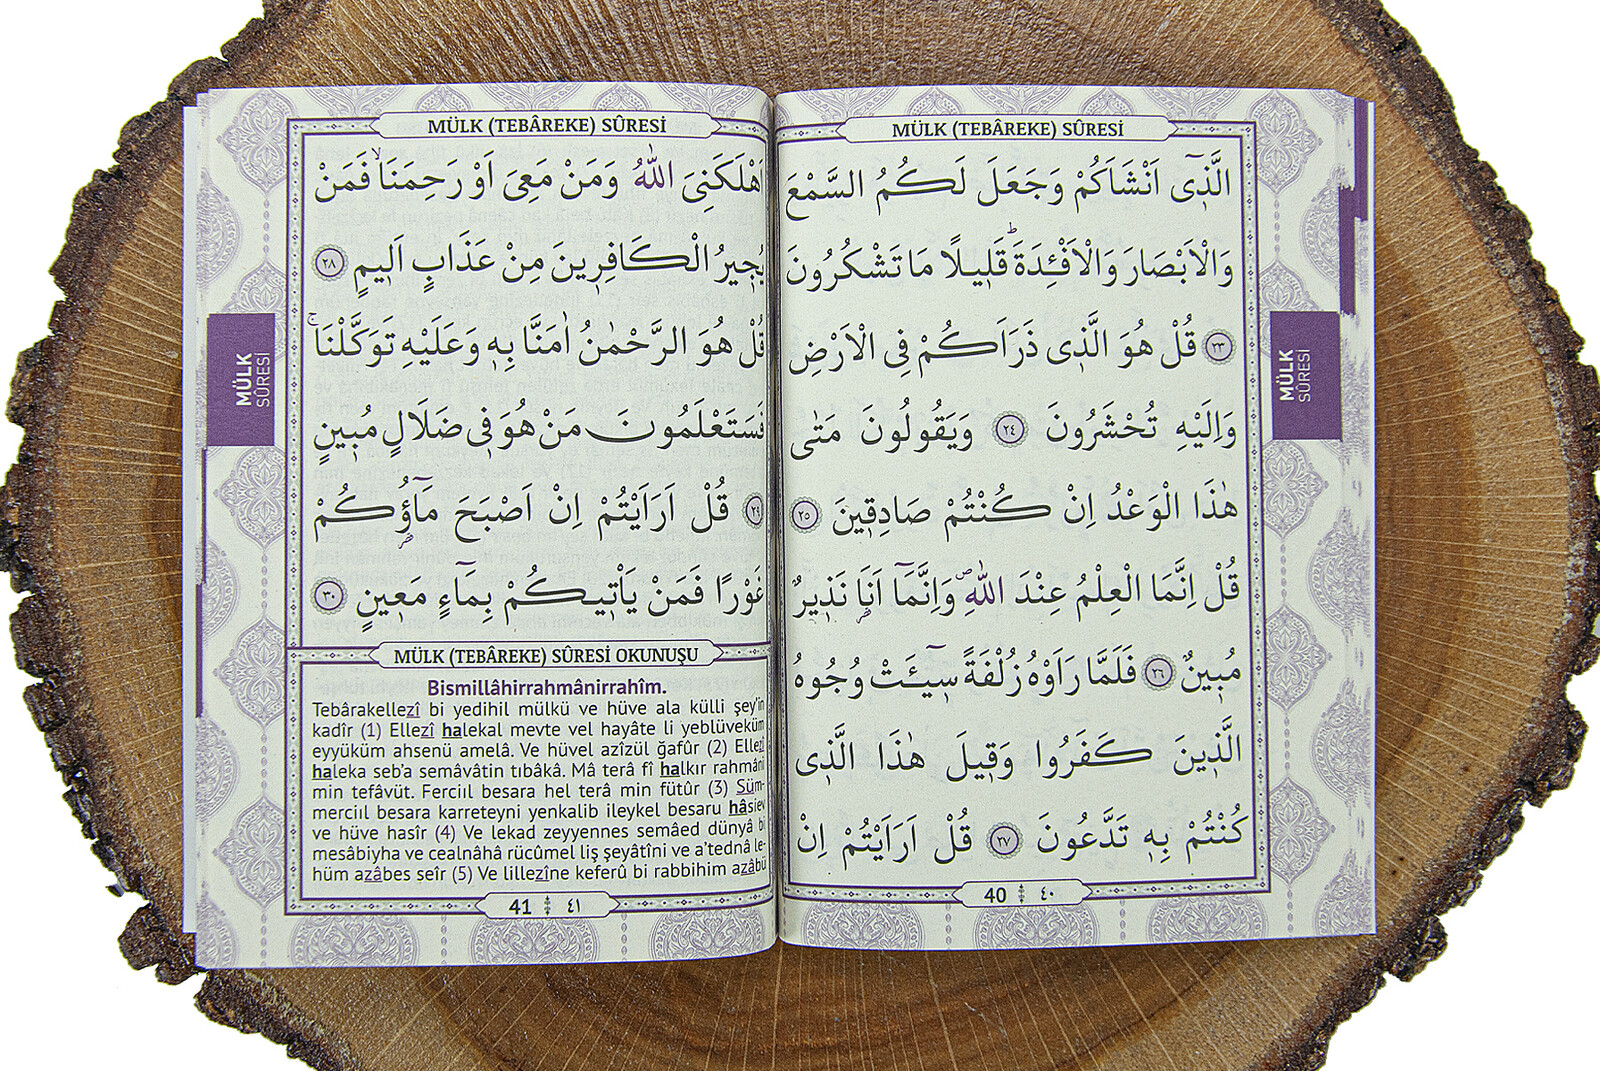 MÜLK (TEBÂREKE) SÛRESİ
الَّذ۪ٓي اَنْشَاَكُمْ وَجَعَلَ لَكُمُ السَّمْعَ
وَالْاَبْصَارَ وَالْاَفْـِٔدَةَۜ قَل۪يلًا مَا تَشْكُرُونَ
﴿٢٣﴾ قُلْ هُوَ الَّذ۪ي ذَرَاَكُمْ فِي الْاَرْضِ
وَاِلَيْهِ تُحْشَرُونَ ﴿٢٤﴾ وَيَقُولُونَ مَتٰى
هٰذَا الْوَعْدُ اِنْ كُنْتُمْ صَادِق۪ينَ ﴿٢٥﴾
قُلْ اِنَّمَا الْعِلْمُ عِنْدَ اللّٰهِۖ وَاِنَّمَٓا اَنَا۬ نَذ۪يرٌ
مُب۪ينٌ ﴿٢٦﴾ فَلَمَّا رَاَوْهُ زُلْفَةً س۪ٓيـَٔتْ وُجُوهُ
الَّذ۪ينَ كَفَرُوا وَق۪يلَ هٰذَا الَّذ۪ي
كُنْتُمْ بِه۪ تَدَّعُونَ ﴿٢٧﴾ قُلْ اَرَاَيْتُمْ اِنْ
40 ٤٠
MÜLK
SÛRESİ
MÜLK (TEBÂREKE) SÛRESİ
اَهْلَكَنِيَ اللّٰهُ وَمَنْ مَعِيَ اَوْ رَحِمَنَاۙ فَمَنْ
يُج۪يرُ الْكَافِر۪ينَ مِنْ عَذَابٍ اَل۪يمٍ ﴿٢٨﴾
قُلْ هُوَ الرَّحْمٰنُ اٰمَنَّا بِه۪ وَعَلَيْهِ تَوَكَّلْنَاۚ
فَسَتَعْلَمُونَ مَنْ هُوَ ف۪ي ضَلَالٍ مُب۪ينٍ
﴿٢٩﴾ قُلْ اَرَاَيْتُمْ اِنْ اَصْبَحَ مَٓاؤُ۬كُمْ
غَوْرًا فَمَنْ يَأْت۪يكُمْ بِمَٓاءٍ مَع۪ينٍ ﴿٣٠﴾
MÜLK (TEBÂREKE) SÛRESİ OKUNUŞU
Bismillâhirrahmânirrahîm.
Tebârakellezî bi yedihil mülkü ve hüve ala külli şey'in
kadîr (1) Ellezî halekal mevte vel hayâte li yeblüveküm
eyyüküm ahsenü amelâ. Ve hüvel azîzül ğafûr (2) Ellezî
haleka seb'a semâvâtin tıbâkâ. Mâ terâ fî halkır rahmâni
min tefâvüt. Ferciıl besara hel terâ min fütûr (3) Süm-
merciıl besara karreteyni yenkalib ileykel besaru hâsiev
ve hüve hasîr (4) Ve lekad zeyyennes semâed dünyâ bi
mesâbiyha ve cealnâhâ rücûmel liş şeyâtîni ve a'tednâ le-
hüm azâbes seîr (5) Ve lillezîne keferû bi rabbihim azâbü
41 ٤١
MÜLK
SÛRESİ